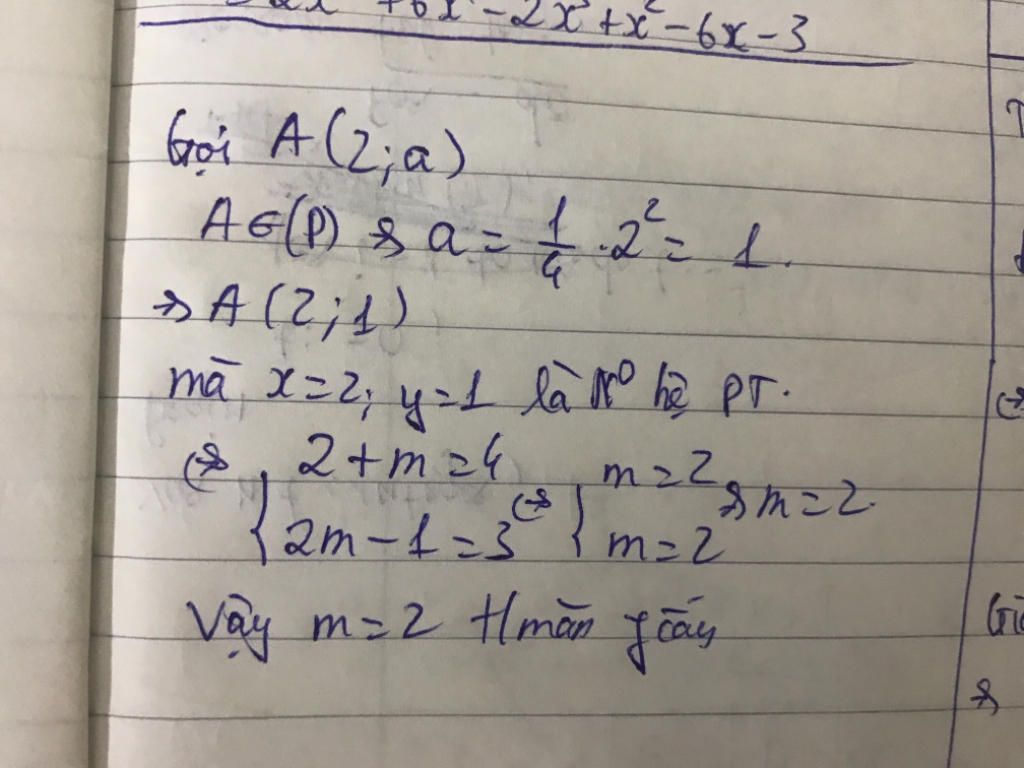 +6x - 2x² + x² - 6x - 3
Gọi A(2; a)
A ∈ (P) ⇒ a = 1/4 · 2² = 1.
⇒ A(2; 1)
mà x = 2; y = 1 là N⁰ hệ PT.
⇔ { 2 + m = 4 ⇔ { m = 2 ⇒ m = 2.
2m - 1 = 3 m = 2
Vậy m = 2 t/mãn ycầu